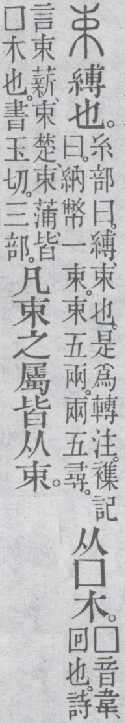 束 縛也。糸部曰。縛、束也。是爲轉注。襍記曰。納幣一束。束五兩。兩五尋。从囗木。囗音韋。回也。詩
言束薪、束楚、束蒲、皆囗木也。書玉切。三部。凡束之屬皆从束。